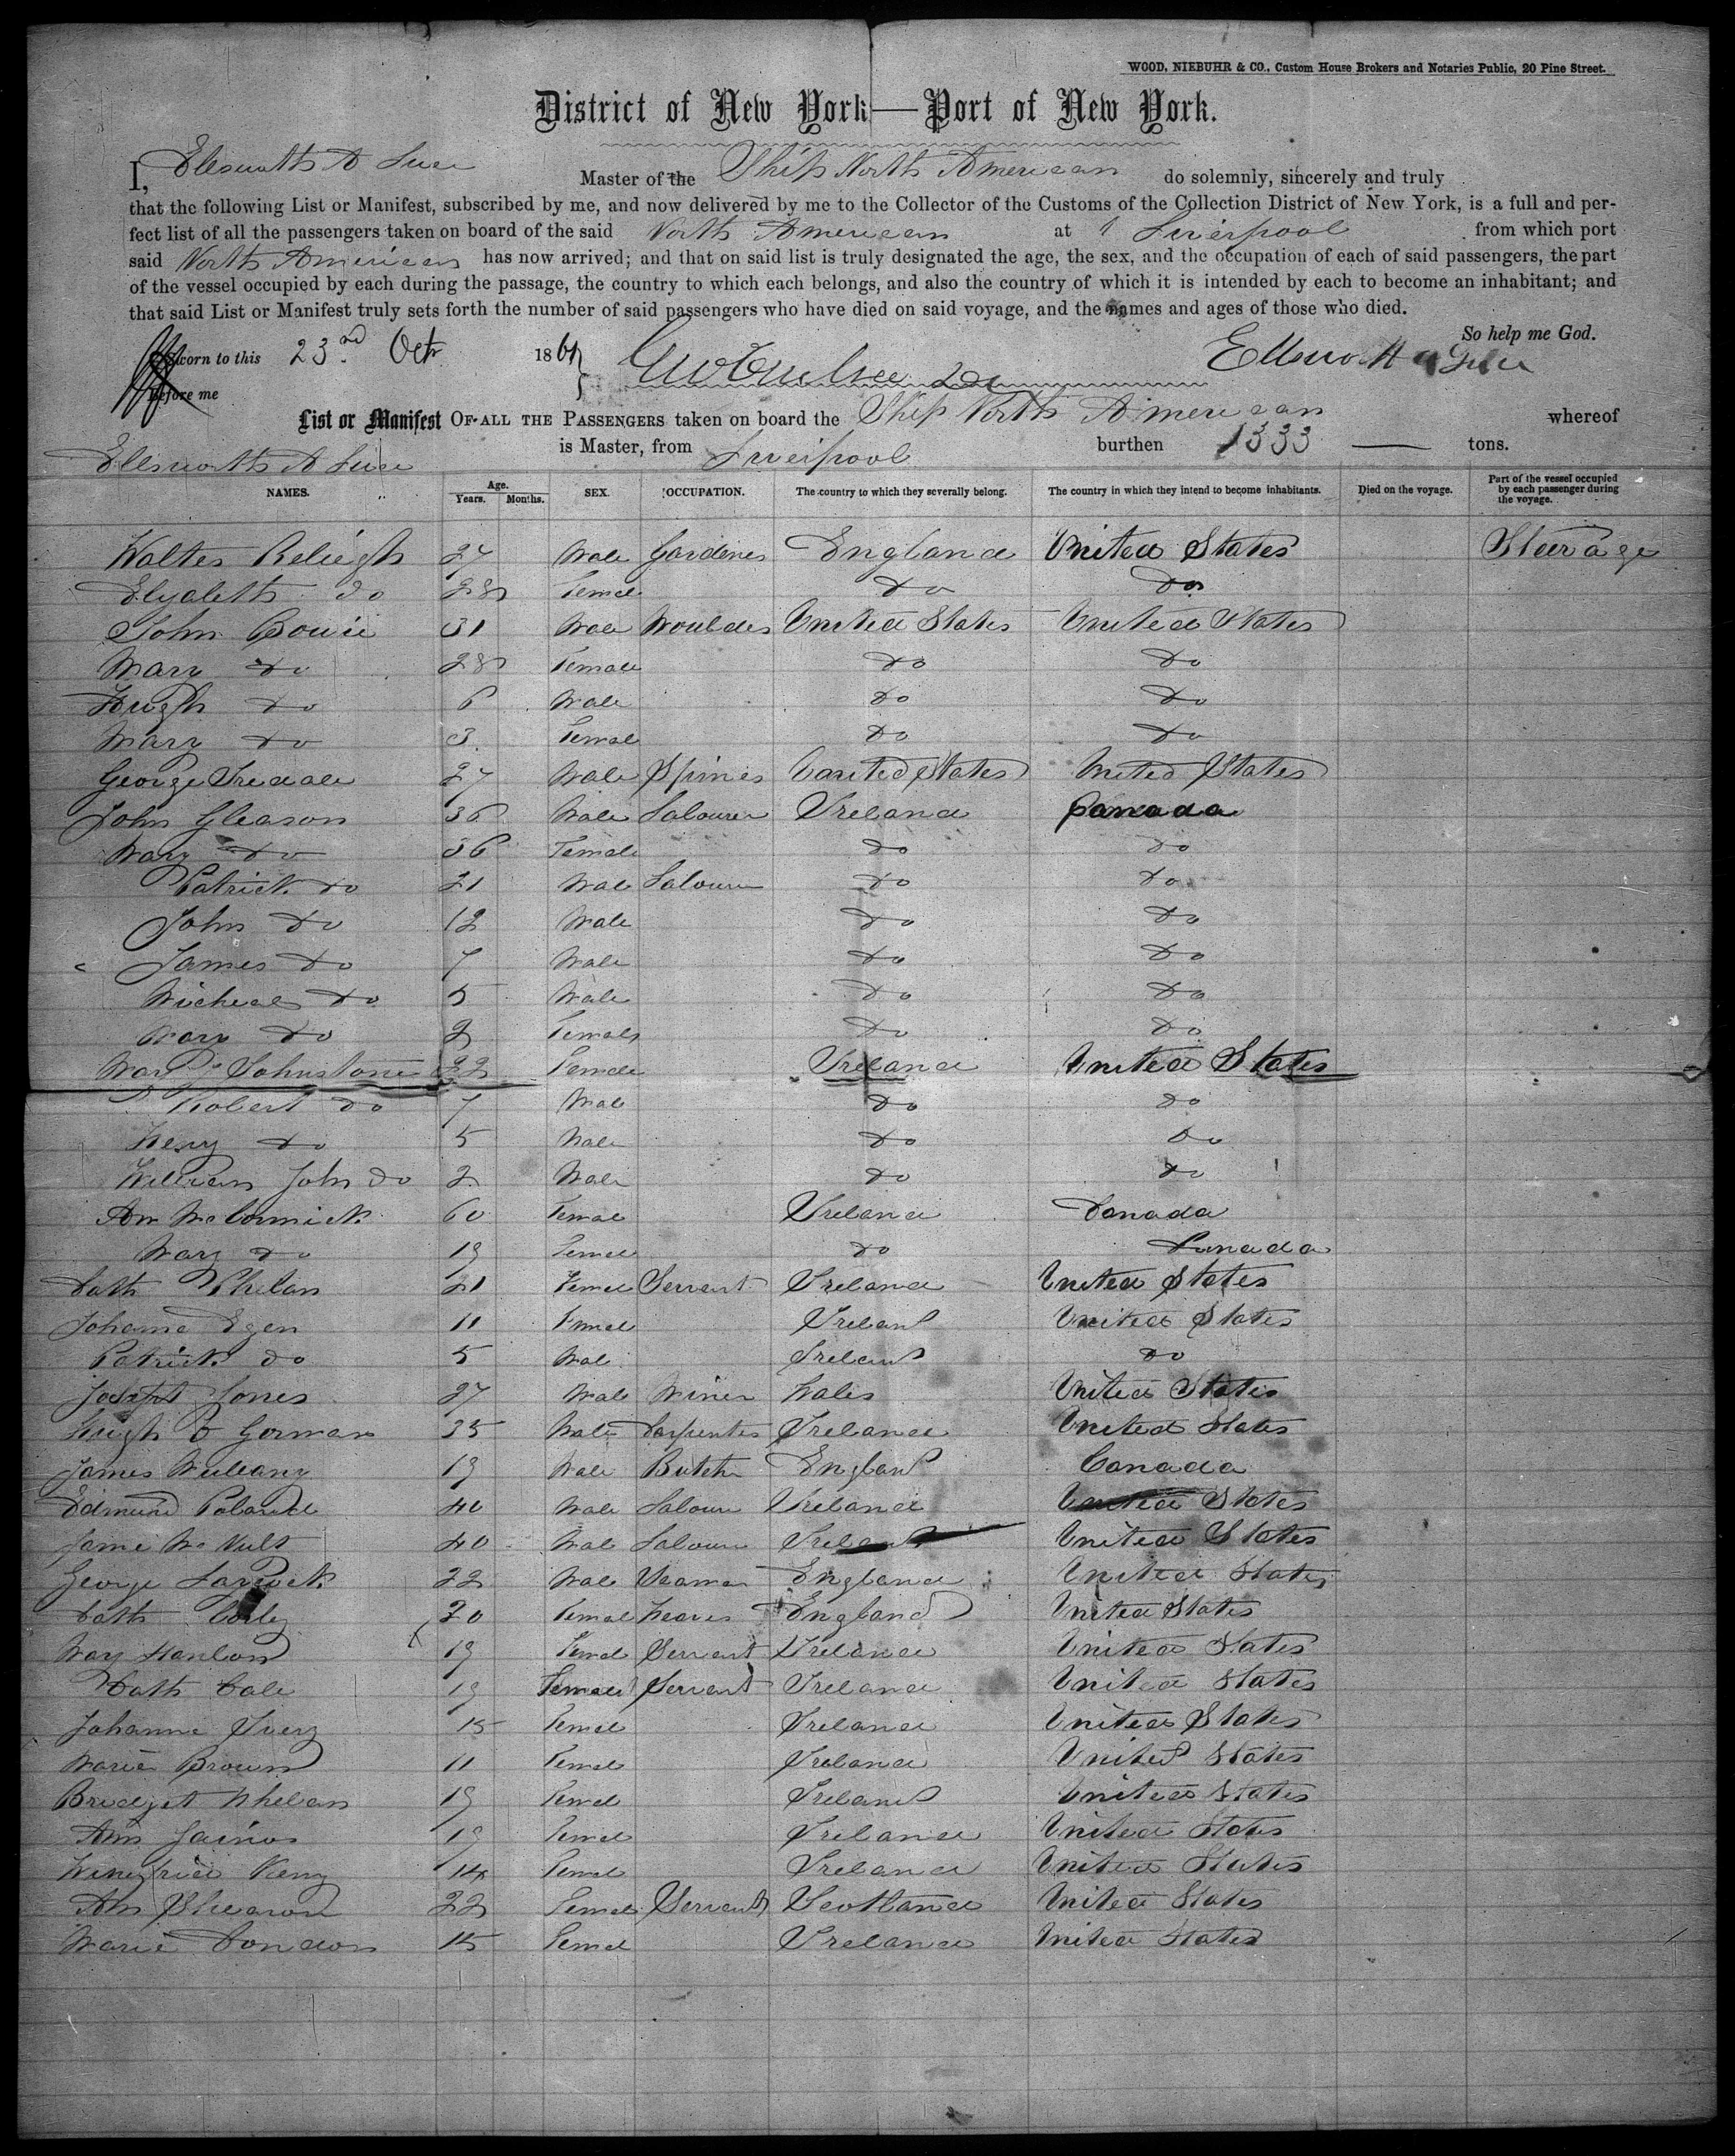 WOOD, NIEBUHR & CO., Custom House Brokers and Notaries Public, 20 Pine Street.
District of New York—Port of New York.
I, Ellsworth A Luce Master of the Ship North American do solemnly, sincerely and truly
that the following List or Manifest, subscribed by me, and now delivered by me to the Collector of the Customs of the Collection District of New York, is a full and per-
fect list of all the passengers taken on board of the said North American at Liverpool from which port
said North American has now arrived; and that on said list is truly designated the age, the sex, and the occupation of each of said passengers, the part
of the vessel occupied by each during the passage, the country to which each belongs, and also the country of which it is intended by each to become an inhabitant; and
that said List or Manifest truly sets forth the number of said passengers who have died on said voyage, and the names and ages of those who died.
So help me God.
Sworn to this 23rd Octr 1861 Ellsworth A Luce
Before me
List or Manifest OF ALL THE PASSENGERS taken on board the Ship North American whereof
Ellsworth A Luce is Master, from Liverpool burthen 1333 tons.
NAMES. Age. Years. Months. SEX. OCCUPATION. The country to which they severally belong. The country in which they intend to become inhabitants. Died on the voyage. Part of the vessel occupied by each passenger during the voyage.
Walter 27 Male Gardener England United States Steerage
Elyabeth do 28 Femel Do Do
John Bowie 31 Male Moulder United States United States
Mary Do 28 Female Do Do
Hugh Do 6 Male Do Do
Mary Do 3 Femal Do Do
George Iredale 27 Male Spiner United States United States
John Gleason 36 Male Labourer Ireland Canada
Mary Do 36 Female Do Do
Patrick Do 21 Male Labourer Do Do
John Do 12 Male Do Do
James Do 7 Male Do Do
Micheal Do 5 Male Do Do
Mary Do 2 Female Do Do
Mary Johnstone 22 Female Ireland United States
Robert Do 7 Male Do Do
Henry Do 5 Male Do Do
William John Do 2 Male Do Do
Ann McCormick 60 Femal Ireland Canada
Mary Do 19 Femel Do Canada
Cath Phelan 21 Femel Servant Ireland United States
Johanna Egen 11 Femel Ireland United States
Patrick do 5 Mal Ireland Do
Joseph Jones 27 Male Miner Wales United States
Hugh O Gorman 35 Male Carpenter Ireland United States
James 19 Male Butcher England Canada
Edmund 40 Male Labour Ireland United States
Jame McNult 40 Mal Labour Ireland United States
George 22 Male Seaman England United States
Cath 20 Femal Weaver England United States
Mary Hanlon 19 Femel Servant Ireland United States
Cath Cale 19 Female Servant Ireland United States
Johanna 15 Femel Ireland United States
Maria Brown 11 Femal Ireland United States
Bridget Whelan 19 Femel Ireland United States
Ann 19 Femel Ireland United States
Winefried 14 Femel Ireland United States
Ann Shearon 22 Femel Servant Scotland United States
Maria Condon 15 Femel Ireland United States